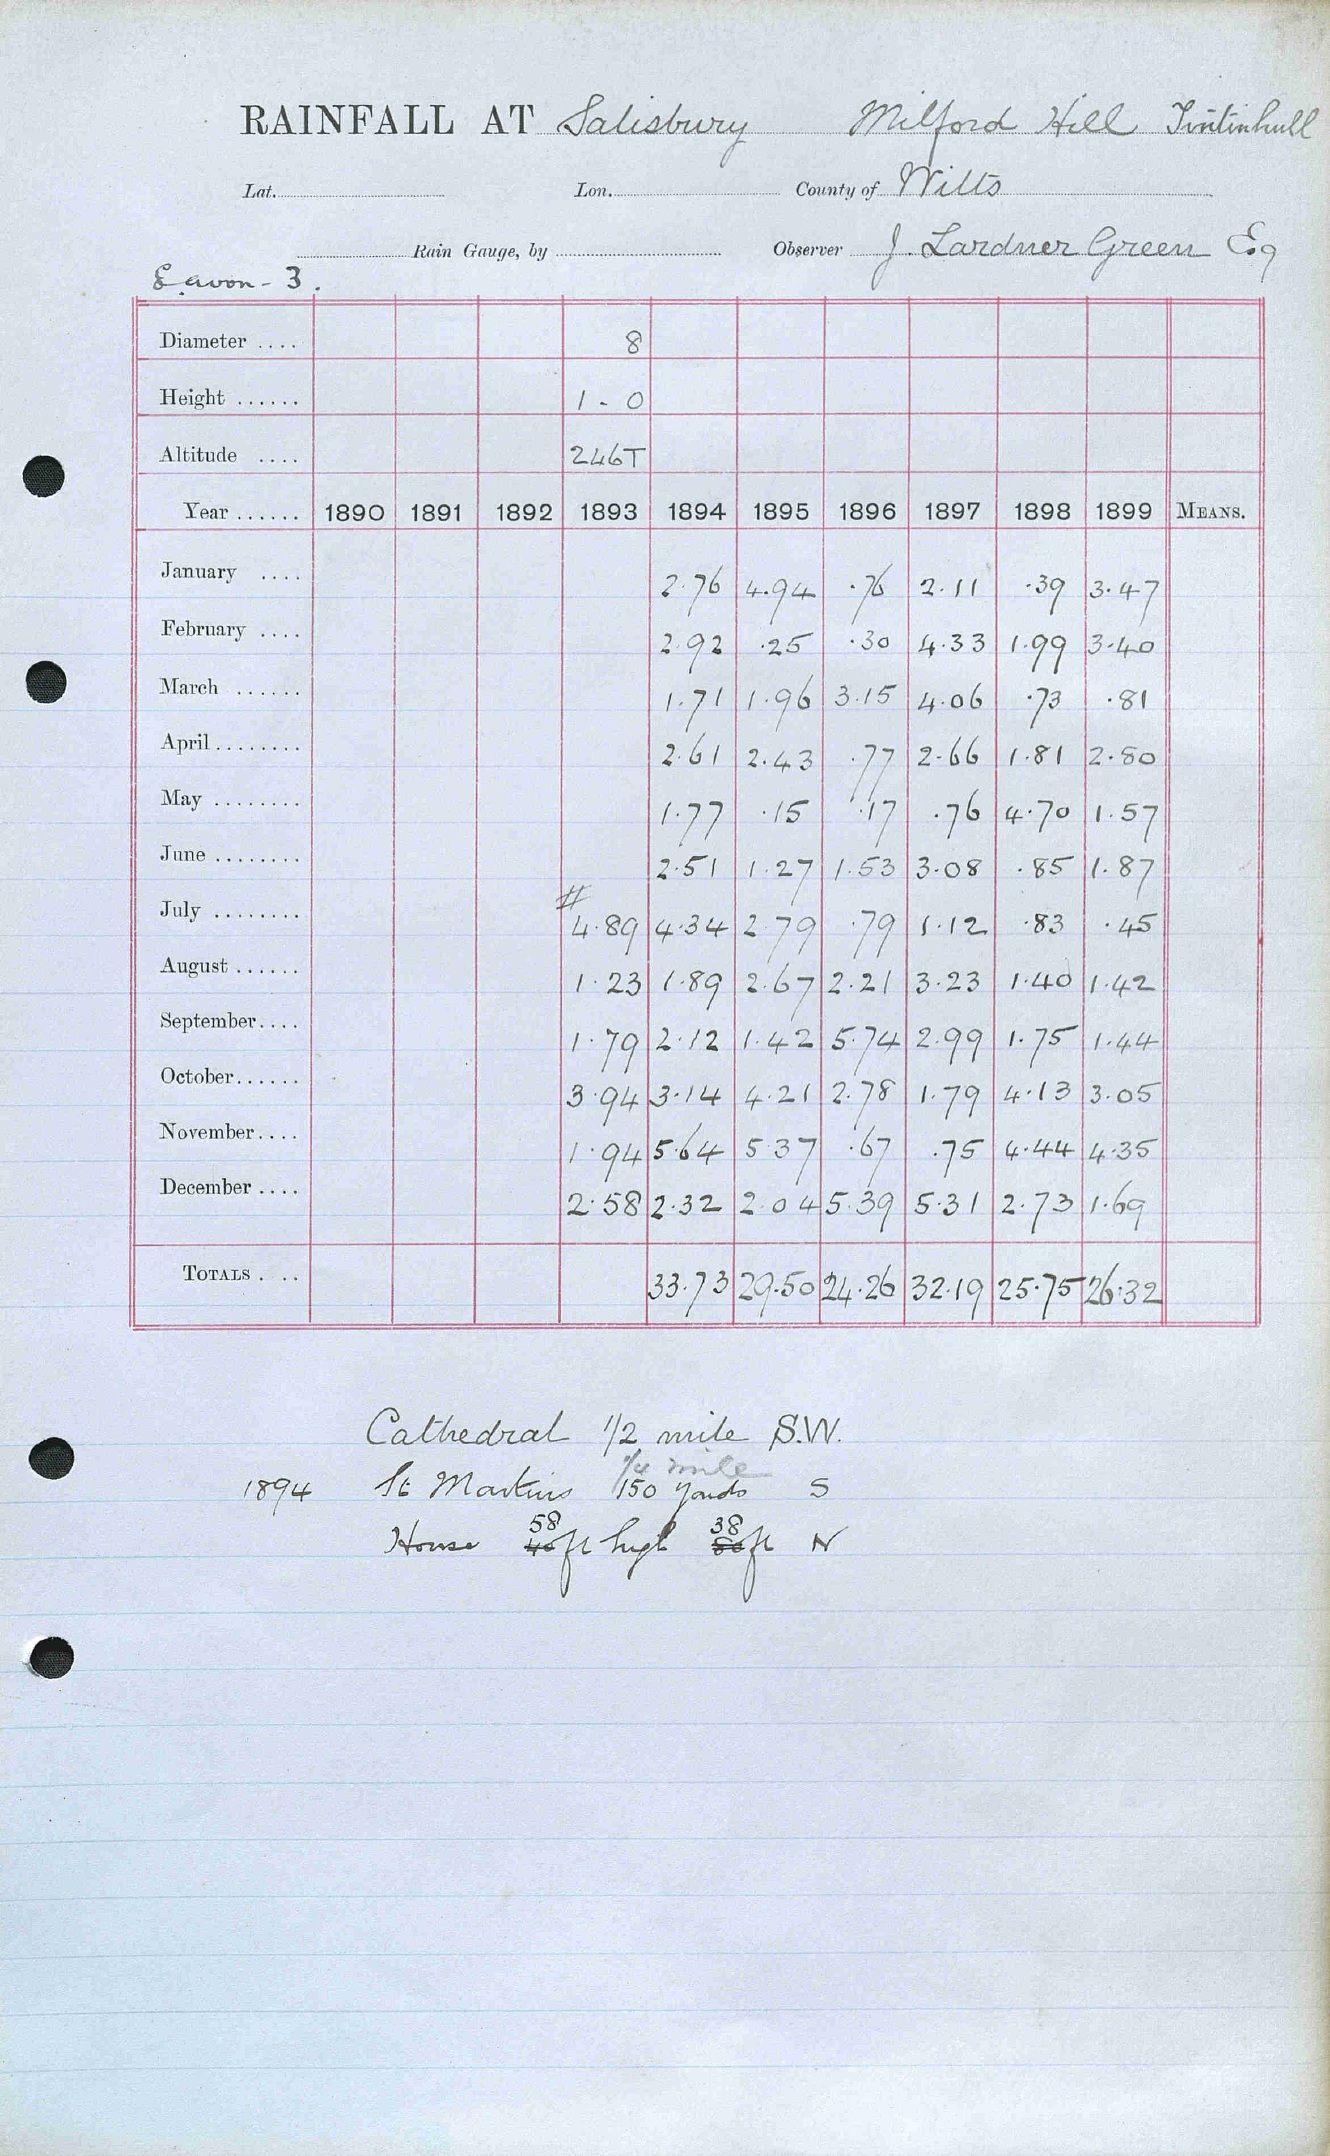 RAINFALL AT Salisbury Milford Hill Tintinhull
Lat. Lon. County of Wilts
Rain Gauge, by Observer J. Lardner Green Esq
E. avon - 3.
Diameter .... 8
Height ...... 1 - 0
Altitude .... 246T
Year ...... 1890 1891 1892 1893 1894 1895 1896 1897 1898 1899 MEANS.
January .... 2.76 4.94 .76 2.11 .39 3.47
February .... 2.92 .25 .30 4.33 1.99 3.40
March ...... 1.71 1.96 3.15 4.06 .73 .81
April........ 2.61 2.43 .77 2.66 1.81 2.80
May ........ 1.77 .15 .17 .76 4.70 1.57
June ........ 2.51 1.27 1.53 3.08 .85 1.87
#
July ........ 4.89 4.34 2.79 .79 1.12 .83 .45
August ...... 1.23 1.89 2.67 2.21 3.23 1.40 1.42
September.... 1.79 2.12 1.42 5.74 2.99 1.75 1.44
October...... 3.94 3.14 4.21 2.78 1.79 4.13 3.05
November.... 1.94 5.64 5.37 .67 .75 4.44 4.35
December .... 2.58 2.32 2.04 5.39 5.31 2.73 1.69
TOTALS . .. 33.73 29.50 24.26 32.19 25.75 26.32
Cathedral 1/2 mile S.W.
1/4 mile
1894 St Martins 150 yards S
58 38
House 40 ft high 80 ft N